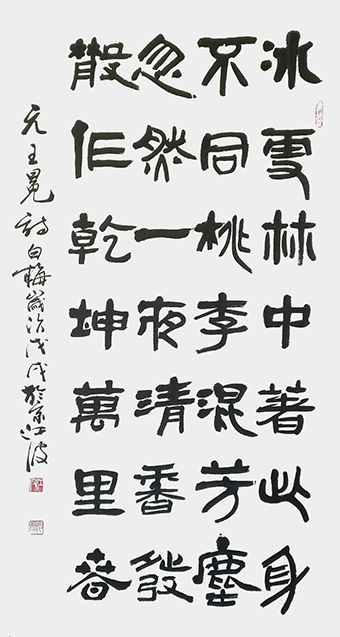 冰雪林中著此身
不同桃李混芳塵
忽然一夜清香發
散作乾坤萬里春
元王冕詩白梅歲次戊戌於京江波